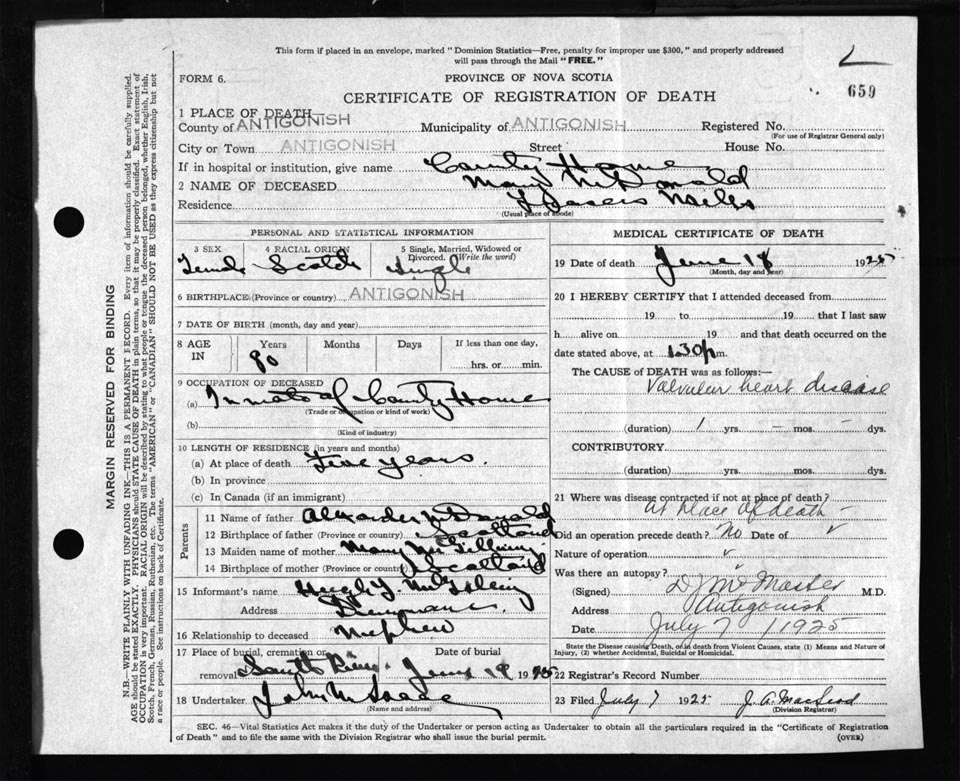 This form if placed in an envelope, marked "Dominion Statistics—Free, penalty for improper use $300," and properly addressed
will pass through the Mail "FREE."
FORM 6.
PROVINCE OF NOVA SCOTIA
659
CERTIFICATE OF REGISTRATION OF DEATH
1 PLACE OF DEATH
County of ANTIGONISH Municipality of ANTIGONISH Registered No.
(For use of Registrar General only)
City or Town ANTIGONISH Street House No.
If in hospital or institution, give name County Home
2 NAME OF DECEASED Mary McDonald
Residence Frasers Mills
(Usual place of abode)
PERSONAL AND STATISTICAL INFORMATION
3 SEX 4 RACIAL ORIGIN 5 Single, Married, Widowed or
Divorced. (Write the word)
Female Scotch Single
6 BIRTHPLACE (Province or country) ANTIGONISH
7 DATE OF BIRTH (month, day and year)
8 AGE IN Years Months Days If less than one day,
80 hrs. or min.
9 OCCUPATION OF DECEASED
(a) Inmate of County Home
(Trade or occupation or kind of work)
(b)
(Kind of industry)
10 LENGTH OF RESIDENCE (in years and months)
(a) At place of death years.
(b) In province
(c) In Canada (if an immigrant)
Parents
11 Name of father Alexander McDonald
12 Birthplace of father (Province or country) Scotland
13 Maiden name of mother Mary
14 Birthplace of mother (Province or country) Scotland
15 Informant's name Hugh
Address
16 Relationship to deceased Nephew
17 Place of burial, cremation or removal Date of burial
South River June 19 1925
18 Undertaker John
(Name and address)
MEDICAL CERTIFICATE OF DEATH
19 Date of death June 18 1925
(Month, day and year)
20 I HEREBY CERTIFY that I attended deceased from
19 to 19 that I last saw
h alive on 19 and that death occurred on the
date stated above, at 1.30 p m.
The CAUSE of DEATH was as follows:—
Valvular heart disease
(duration) 1 yrs. - mos. - dys.
CONTRIBUTORY
(duration) yrs. mos. dys.
21 Where was disease contracted if not at place of death?
at place of death -
Did an operation precede death? No Date of
Nature of operation
Was there an autopsy?
(Signed) McMaster M.D.
Address Antigonish
Date July 7 / 1925
State the Disease causing Death, or in death from Violent Causes, state (1) Means and Nature of
Injury, (2) whether Accidental, Suicidal or Homicidal.
22 Registrar's Record Number
23 Filed July 7 1925 J. A. MacLeod
(Division Registrar)
SEC. 46—Vital Statistics Act makes it the duty of the Undertaker or person acting as Undertaker to obtain all the particulars required in the "Certificate of Registration
of Death" and to file the same with the Division Registrar who shall issue the burial permit.
(OVER)
MARGIN RESERVED FOR BINDING
N.B.—WRITE PLAINLY WITH UNFADING INK—THIS IS A PERMANENT RECORD. Every item of information should be carefully supplied.
AGE should be stated EXACTLY. PHYSICIANS should STATE CAUSE OF DEATH in plain terms, so that it may be properly classified. Exact statement of
OCCUPATION is very important. RACIAL ORIGIN will be described by stating to what people or tongue the deceased person belonged, whether English, Irish,
Scotch, French, German, Russian, Ruthenian, etc. The terms "AMERICAN" or "CANADIAN" SHOULD NOT BE USED as they express citizenship but not
a race or people. See instructions on back of Certificate.